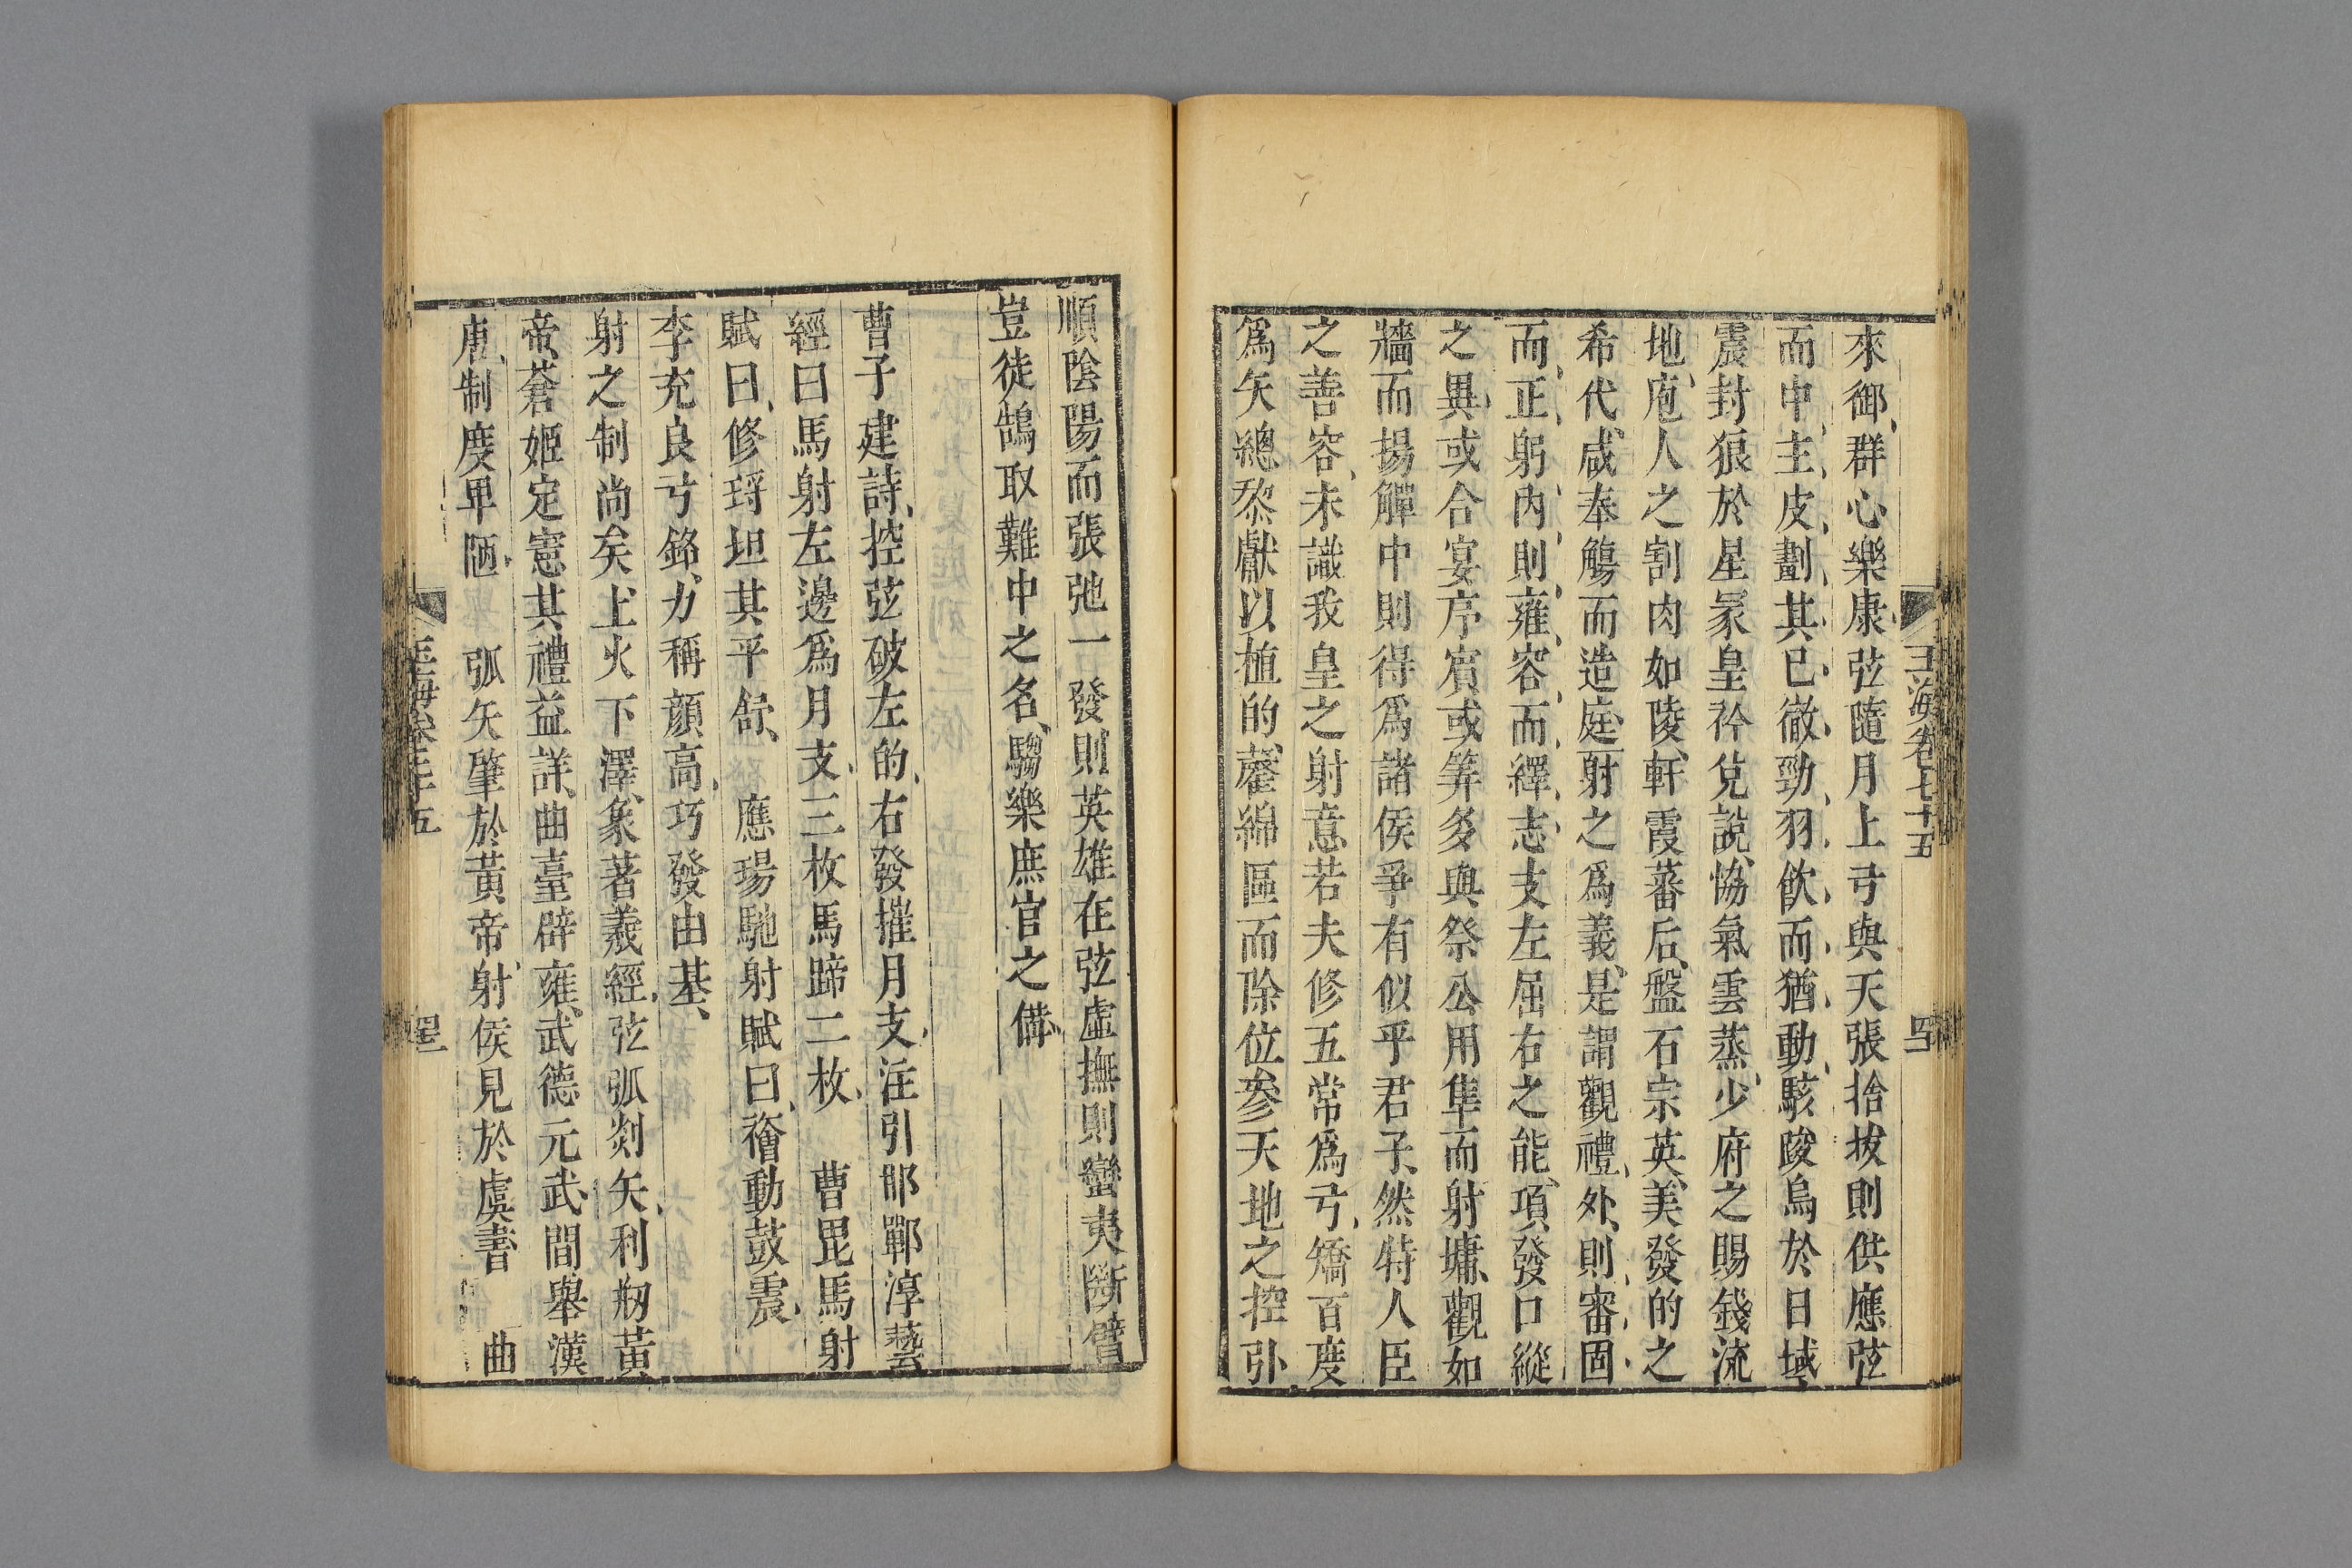 玉海卷七十五
來御、群心樂康、弦隨月上弓與天張捨拔則供應弦
而中、主、皮、劃、其、已、徹、勁、羽、飲、而、猶、動、駭踆烏於日域、
震封狼於星冢皇矜兌說、恊氣雲蒸、少府之賜錢流
地、庖人之割肉如陵、軒霞蕃后、盤石宗英、美發的之
希代、咸奉觴而造庭、射之爲義、是謂觀禮、外、則、審、固、
而、正、躬、內、則、雍、容、而、繹、志、支左屈右之能、項發口縱
之異、或合宴序賓、或筭多與祭公用隼而射墉、觀如
牆而揚觶中則得爲諸侯爭有似乎君子、然特人臣
之善容、未識我皇之射意若夫修五常爲弓、矯百度
爲矢總黎獻以植的、蘿綿區而除位參天地之控引
順陰陽而張弛一發則英雄在弦虛撫則蠻夷斷臂
豈徒鵠取難中之名、騶樂庶官之備、
曹子建詩、控弦破左的、右發摧月支、注引邯鄲淳藝
經曰馬射左邊爲月支、三枚馬蹄二枚、 曹毘馬射
賦曰、修埒坦其平舒、 應瑒馳射賦曰、襘動鼓震、
李充良弓銘、力稱顏高、巧發由基、
射之制尚矣、上火下澤、象著羲經、弦弧剡矢、利剏黃
帝、蒼姬定憲其禮益詳、曲臺辟雍、武德元武、間舉漢
唐、制度卑陋、 弧矢肇於黃帝、射侯見於虞書 曲